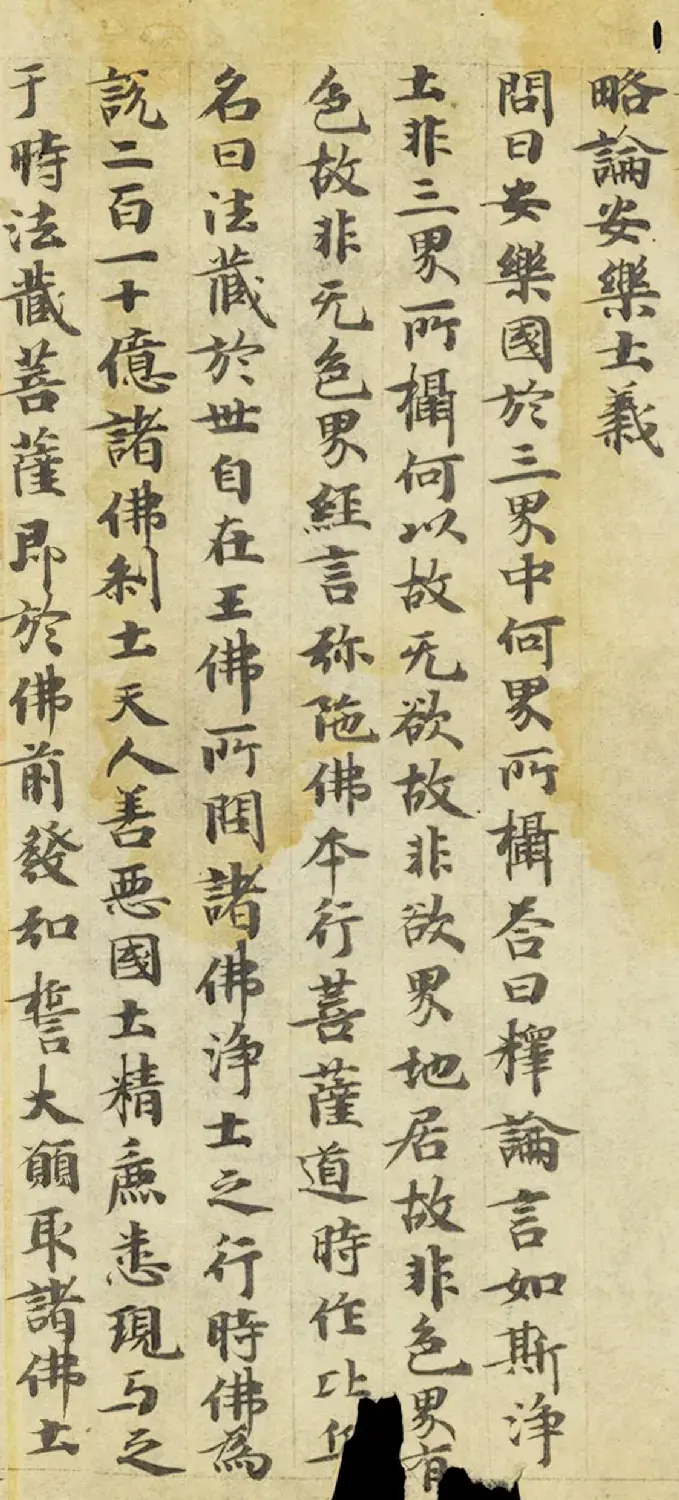 略論安樂土義
問曰安樂國於三界中何界所攝荅曰釋論言如斯浄
土非三界所攝何以故无欲故非欲界地居故非色界有
色故非无色界經言弥陁佛本行菩薩道時作比丘
名曰法蔵於世自在王佛所問諸佛浄土之行時佛為
說二百一十億諸佛刹土天人善惡國土精麁悉現与之
于時法蔵菩薩即於佛前發弘誓大願取諸佛土